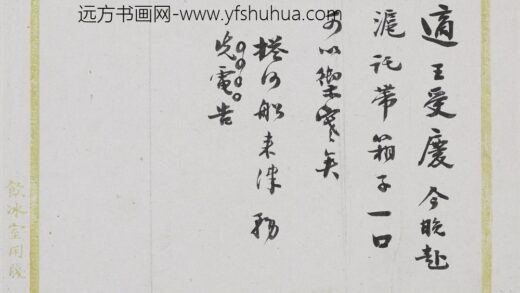 远方书画网-www.yfshuhua.com
適王受慶今晚赴
滬託帶箱子一口
可以禦寒矣
搭何船来津務
先電告
飲冰室用牋